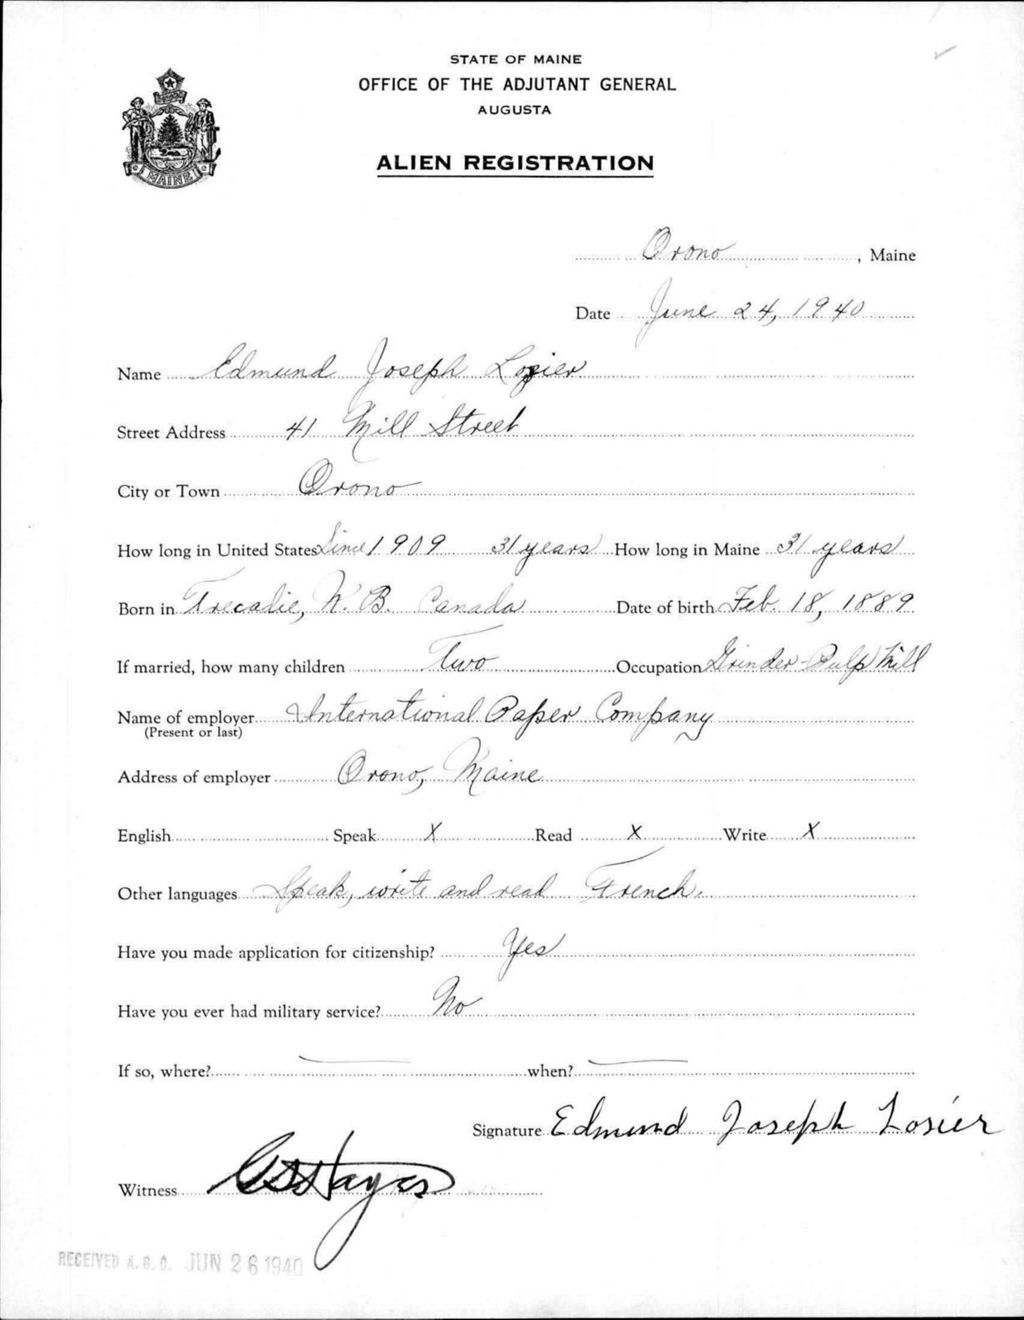 STATE OF MAINE
OFFICE OF THE ADJUTANT GENERAL
AUGUSTA
ALIEN REGISTRATION
MAINE
Orono, Maine
Date June 24, 1940
Name Edmund Joseph Lozier
Street Address 41 Mill Street
City or Town Orono
How long in United States Since 1909 31 years How long in Maine 31 years
Born in Trecadie, N. B. Canada Date of birth Feb. 18, 1889
If married, how many children Two Occupation Grinder-Pulp Mill
Name of employer International Paper Company
(Present or last)
Address of employer Orono, Maine
English Speak X Read X Write X
Other languages Speak, write and read French.
Have you made application for citizenship? Yes
Have you ever had military service? No
If so, where? when?
Signature Edmund Joseph Losier
Witness Hayes
RECEIVED A.G.O. JUN 26 1940